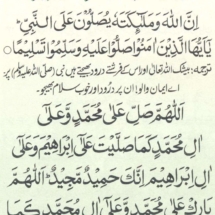 اِنَّ اللّٰهَ وَمَلٰٓئِكَتَهٗ يُصَلُّوْنَ عَلَى النَّبِيِّ
يٰٓاَيُّهَا الَّذِيْنَ اٰمَنُوْا صَلُّوْا عَلَيْهِ وَسَلِّمُوْا تَسْلِيْمًا
ترجمہ: بیشک اللہ تعالیٰ اور اس کے فرشتے درود بھیجتے ہیں نبی (صلی اللہ علیہ وسلم) پر
اے ایمان والو! ان پر درود اور خوب سلام بھیجو۔
اَللّٰهُمَّ صَلِّ عَلٰى مُحَمَّدٍ وَّعَلٰٓى
اٰلِ مُحَمَّدٍ كَمَا صَلَّيْتَ عَلٰٓى اِبْرَاهِيْمَ وَعَلٰٓى
اٰلِ اِبْرَاهِيْمَ اِنَّكَ حَمِيْدٌ مَّجِيْدٌ اَللّٰهُمَّ
بَارِكْ عَلٰى مُحَمَّدٍ وَّعَلٰٓى اٰلِ مُحَمَّدٍ كَمَا